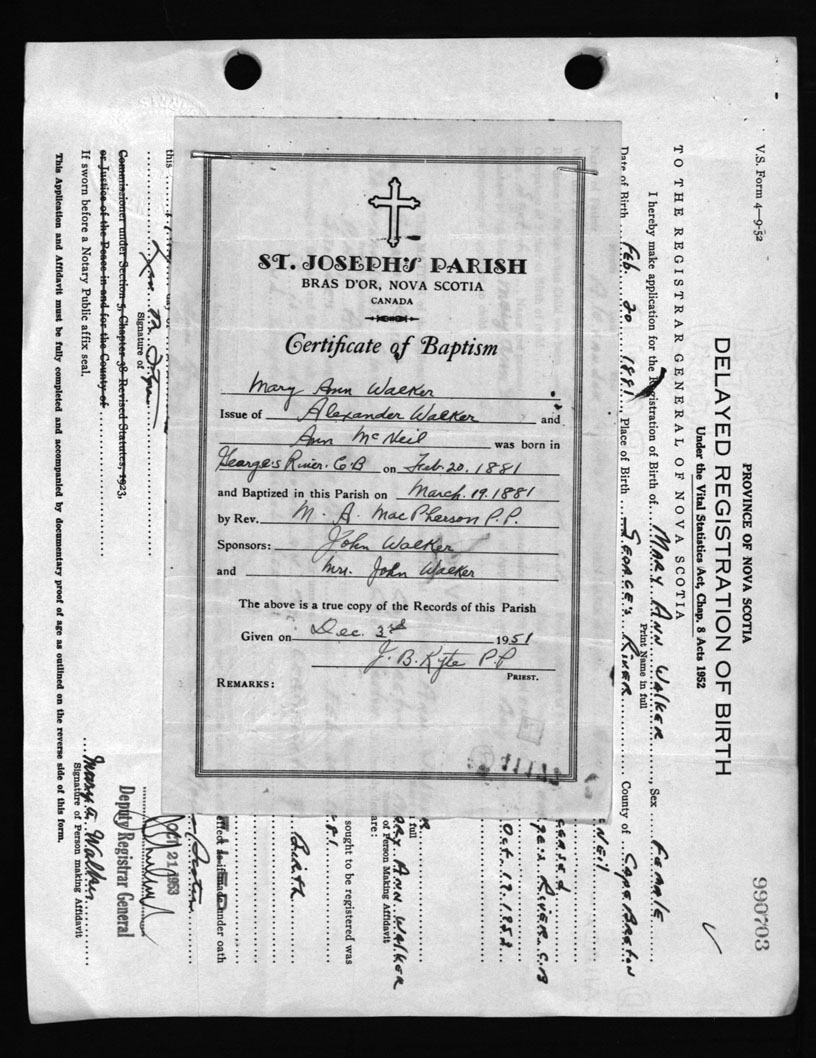 ST. JOSEPH'S PARISH
BRAS D'OR, NOVA SCOTIA
CANADA
Certificate of Baptism
Mary Ann Walker
Issue of Alexander Walker and
Ann McNeil was born in
George's River. C.B on Feb. 20. 1881
and Baptized in this Parish on March. 19. 1881
by Rev. M. A. MacPherson P.P.
Sponsors: John Walker
and Mrs. John Walker
The above is a true copy of the Records of this Parish
Given on Dec. 3rd 1951
J. B. Kyte P.P
PRIEST.
REMARKS:
V.S. Form 4—9-52
PROVINCE OF NOVA SCOTIA
DELAYED REGISTRATION OF BIRTH
Under the Vital Statistics Act, Chap. 8 Acts 1952
990703
TO THE REGISTRAR GENERAL OF NOVA SCOTIA
I hereby make application for the Registration of Birth of MARY ANN WALKER, Sex FEMALE
Print Name in full
Date of Birth Feb. 20 1881, Place of Birth GEORGE'S RIVER County of CAPE BRETON
NEIL
RIVER. C.B
Oct. 19. 1953
full
ARY ANN WALKER
of Person Making Affidavit
are:
sought to be registered was
81
Birth
under oath
this day of
Signature of
Commissioner under Section 5, Chapter 38 Revised Statutes, 1923,
or Justice of the Peace in and for the County of
If sworn before a Notary Public affix seal.
OCT 21 1953
Deputy Registrar General
Mary A. Walker
Signature of Person making Affidavit
This Application and Affidavit must be fully completed and accompanied by documentary proof of age as outlined on the reverse side of this form.